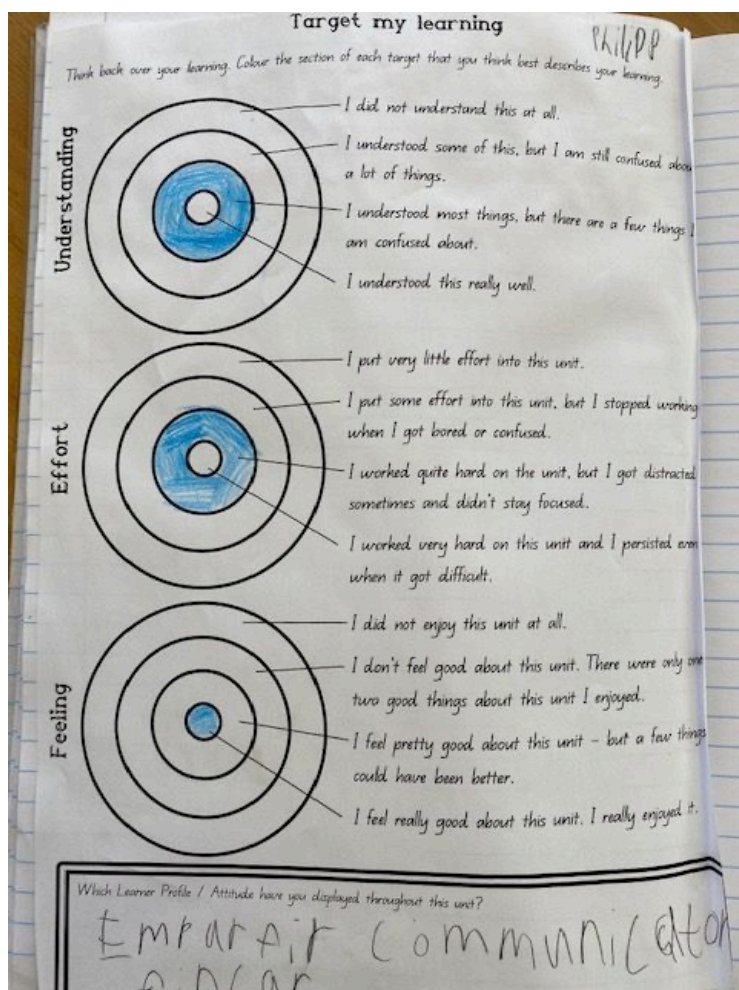 Target my learning
PhiliPP
Think back over your learning. Colour the section of each target that you think best describes your learning.
Understanding
I did not understand this at all.
I understood some of this, but I am still confused abou
a lot of things.
I understood most things, but there are a few things I
am confused about.
I understood this really well.
Effort
I put very little effort into this unit.
I put some effort into this unit, but I stopped working
when I got bored or confused.
I worked quite hard on the unit, but I got distracted
sometimes and didn't stay focused.
I worked very hard on this unit and I persisted even
when it got difficult.
Feeling
I did not enjoy this unit at all.
I don't feel good about this unit. There were only one
two good things about this unit I enjoyed.
I feel pretty good about this unit – but a few things
could have been better.
I feel really good about this unit. I really enjoyed it.
Which Learner Profile / Attitude have you displayed throughout this unit?
Communicator